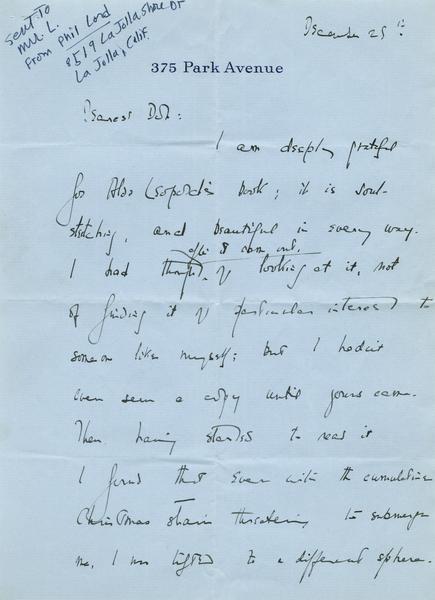 Sent To
MM L.
From Phil Lord
8519 La Jolla Shore Dr
La Jolla, Calif.
December 25th
375 Park Avenue
Dearest Dot:
I am deeply grateful
for Aldo Leopold's book; it is soul-
stretching, and beautiful in every way.
after it came out.
I had thought of looking at it, not
of finding it of particular interest to
someone like myself; but I hadn't
even seen a copy until yours came.
Then having started to read it
I found that even with the cumulative
Christmas strain threatening to submerge
me, I was lifted to a different sphere.